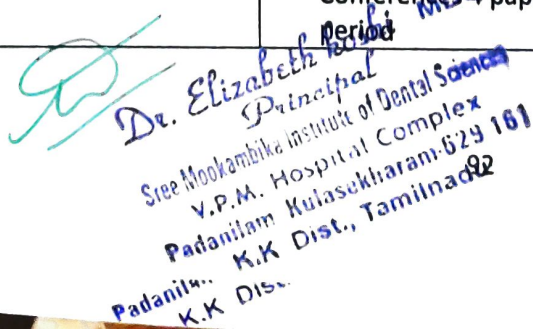 period
Dr. Elizabeth Koshi
Principal
Sree Mookambika Institute of Dental Sciences
V.P.M. Hospital Complex
Padanilam Kulasekharam-629 161
K.K Dist., Tamilnadu
92
Padanila..
K.K Dis..